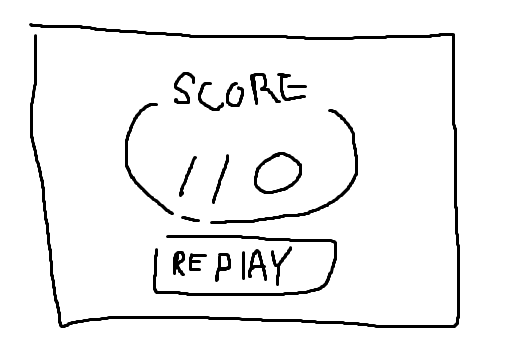 SCORE
110
REPLAY